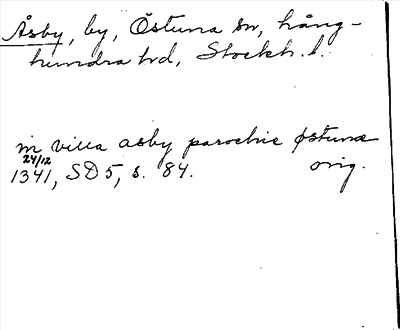 Åsby, by, Östuna sn, Lång-
hundra hd, Stockh. l.
in villa asby parochie østunæ
24/12
1341, SD 5, s. 84. orig.